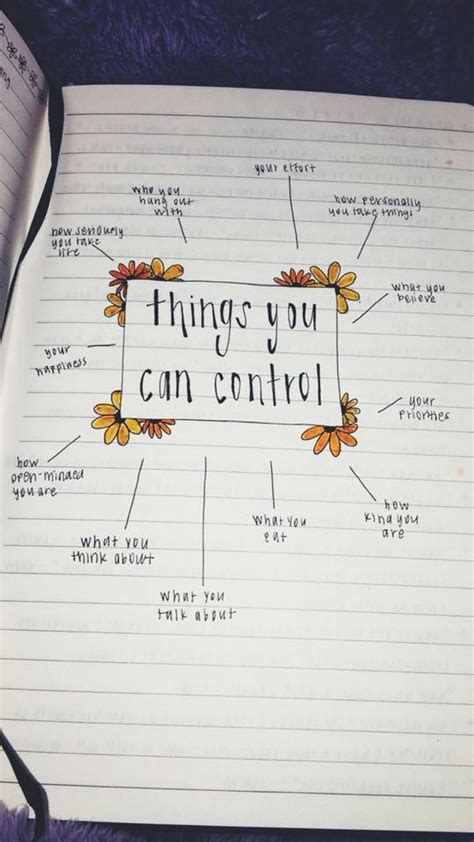 your effort
who you
hung out
with
how personally
you take things
how seriously
you take
life
what you
believe
things you
can control
your
happiness
your
priorities
how
open-minded
you are
how
kind you
are
what you
eat
what you
think about
what you
talk about